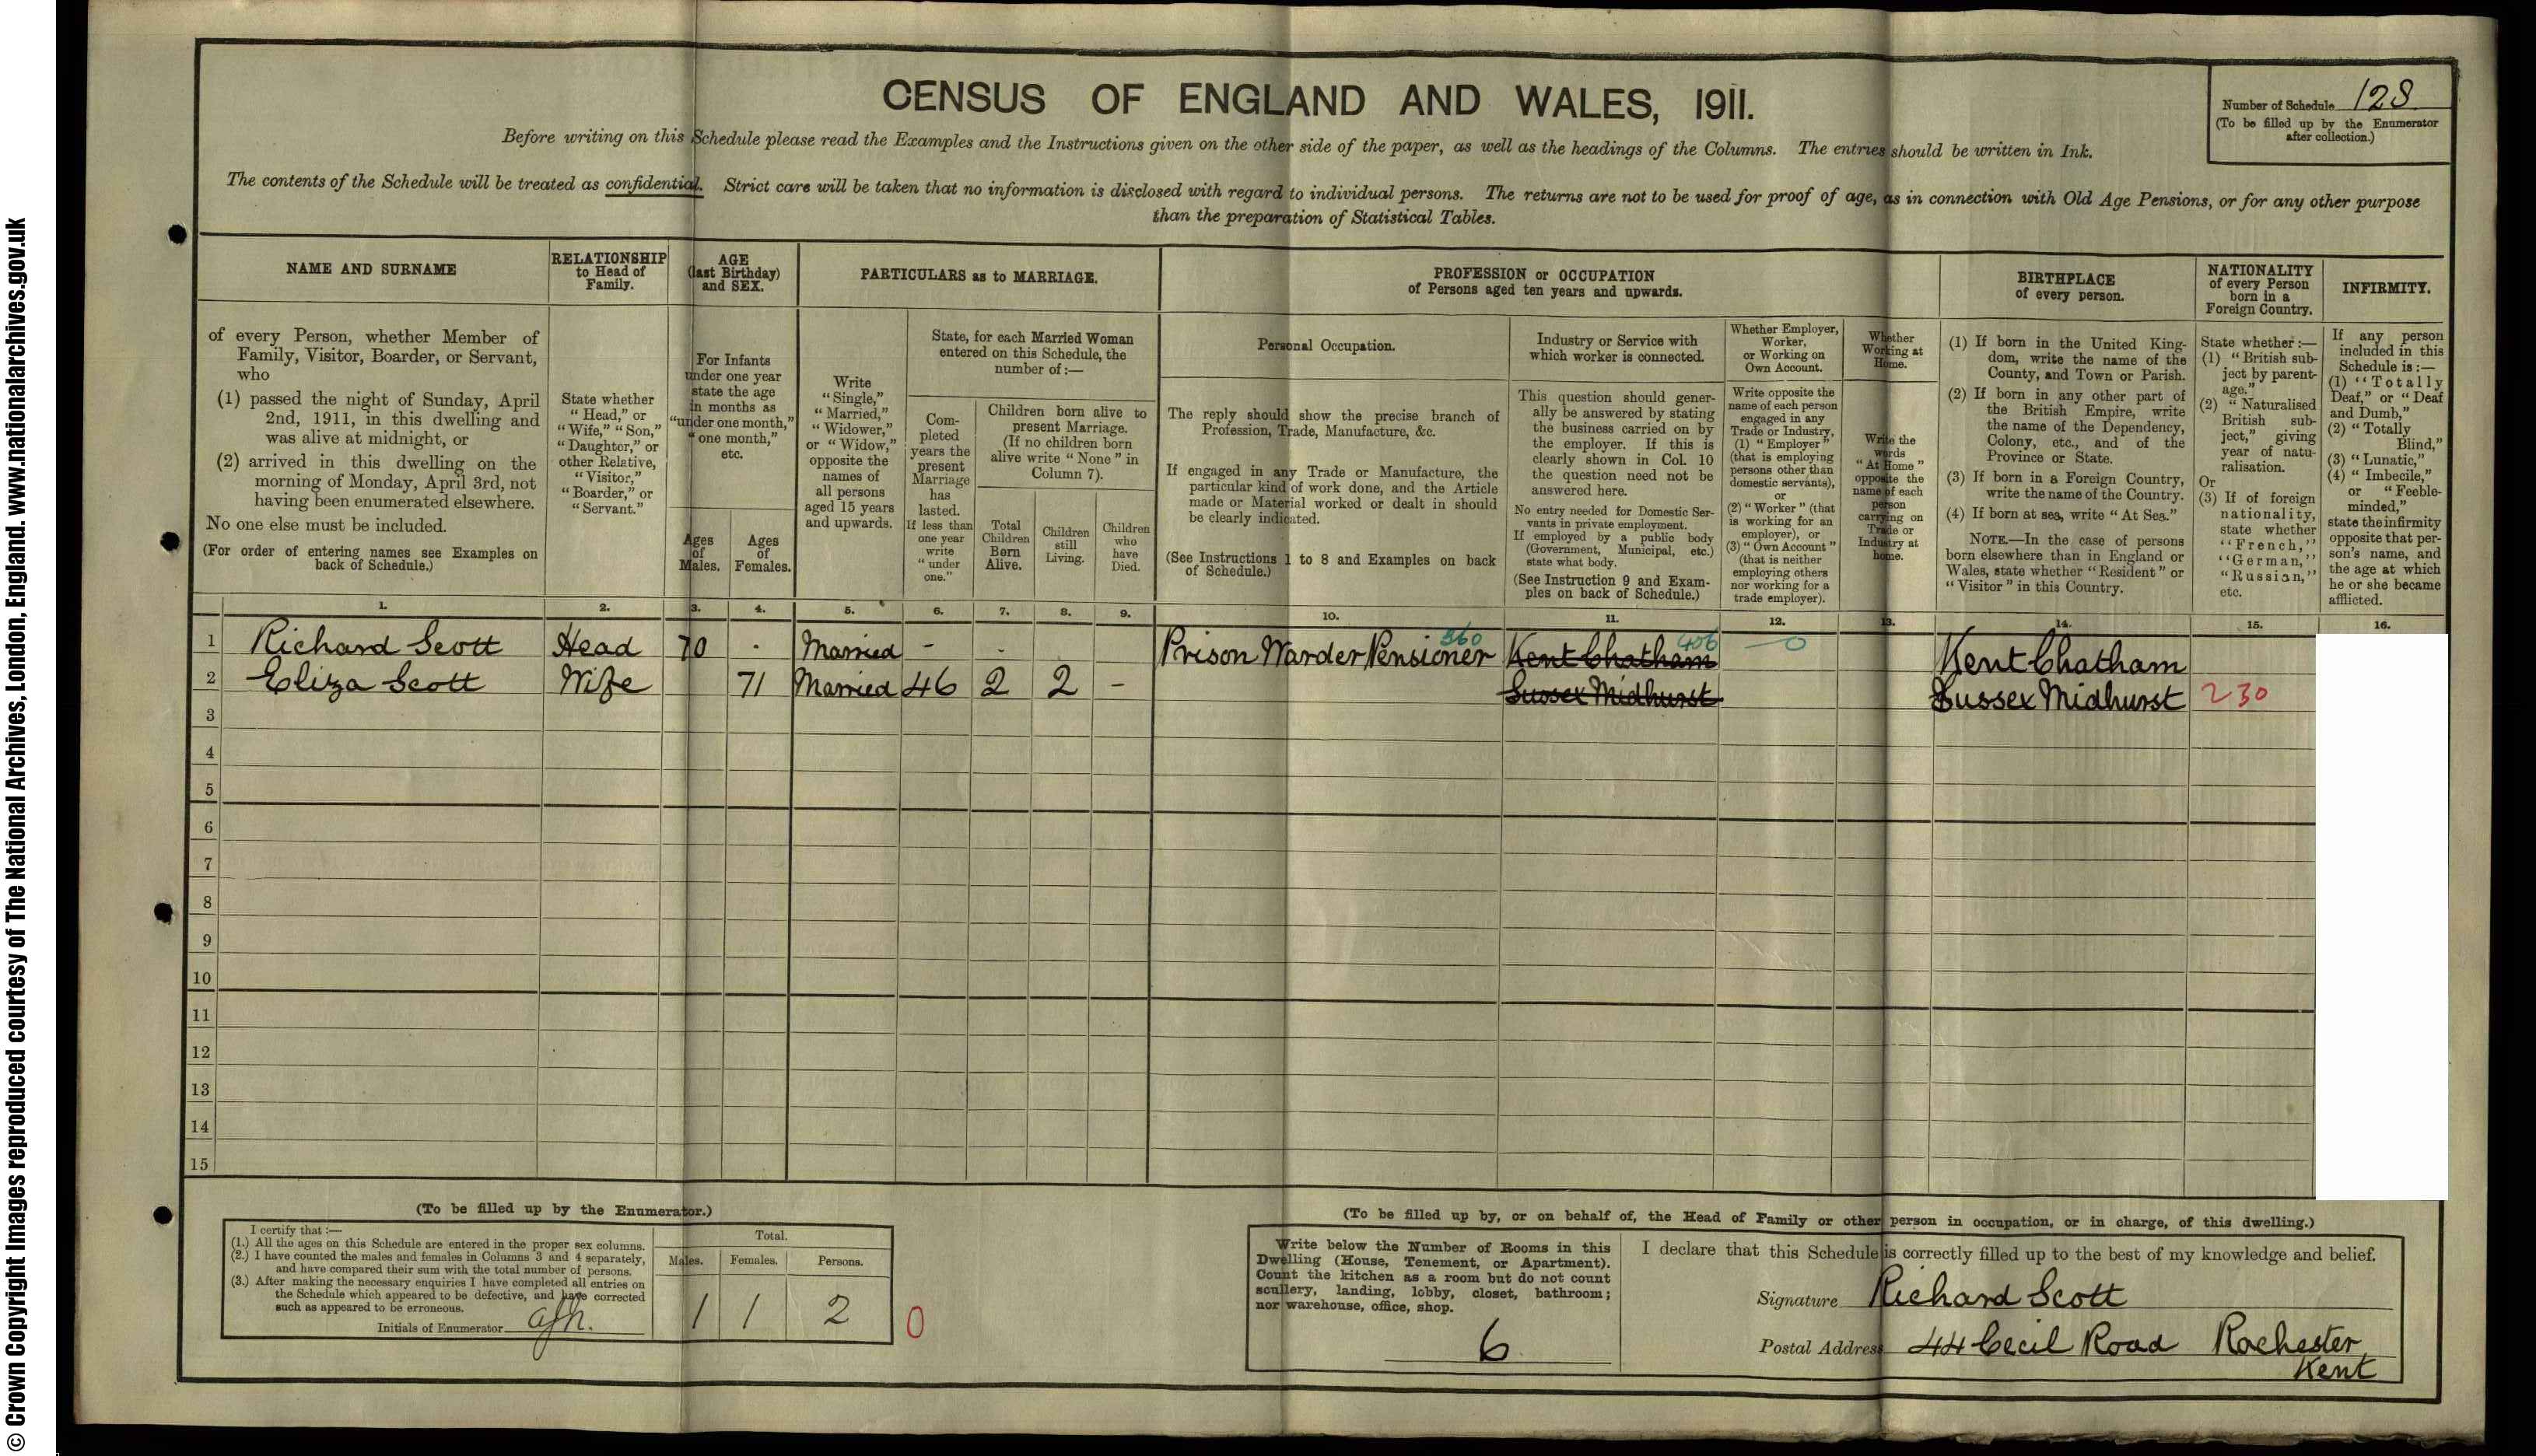 CENSUS OF ENGLAND AND WALES, 1911.
Number of Schedule 128
(To be filled up by the Enumerator
after collection.)
Before writing on this Schedule please read the Examples and the Instructions given on the other side of the paper, as well as the headings of the Columns. The entries should be written in Ink.
The contents of the Schedule will be treated as confidential. Strict care will be taken that no information is disclosed with regard to individual persons. The returns are not to be used for proof of age, as in connection with Old Age Pensions, or for any other purpose
than the preparation of Statistical Tables.
NAME AND SURNAME
of every Person, whether Member of
Family, Visitor, Boarder, or Servant,
who
(1) passed the night of Sunday, April
2nd, 1911, in this dwelling and
was alive at midnight, or
(2) arrived in this dwelling on the
morning of Monday, April 3rd, not
having been enumerated elsewhere.
No one else must be included.
(For order of entering names see Examples on
back of Schedule.)
RELATIONSHIP
to Head of
Family.
State whether
"Head," or
"Wife," "Son,"
"Daughter," or
other Relative,
"Visitor,"
"Boarder," or
"Servant."
AGE
(last Birthday)
and SEX.
For Infants
under one year
state the age
in months as
"under one month,"
"one month,"
etc.
Ages
of
Males.
Ages
of
Females.
PARTICULARS as to MARRIAGE.
Write
"Single,"
"Married,"
"Widower,"
or "Widow,"
opposite the
names of
all persons
aged 15 years
and upwards.
State, for each Married Woman
entered on this Schedule, the
number of :—
Com-
pleted
years the
present
Marriage
has
lasted.
If less than
one year
write
"under
one."
Children born alive to
present Marriage.
(If no children born
alive write "None" in
Column 7).
Total
Children
Born
Alive.
Children
still
Living.
Children
who
have
Died.
PROFESSION or OCCUPATION
of Persons aged ten years and upwards.
Personal Occupation.
The reply should show the precise branch of
Profession, Trade, Manufacture, &c.
If engaged in any Trade or Manufacture, the
particular kind of work done, and the Article
made or Material worked or dealt in should
be clearly indicated.
(See Instructions 1 to 8 and Examples on back
of Schedule.)
Industry or Service with
which worker is connected.
This question should gener-
ally be answered by stating
the business carried on by
the employer. If this is
clearly shown in Col. 10
the question need not be
answered here.
No entry needed for Domestic Ser-
vants in private employment.
If employed by a public body
(Government, Municipal, etc.)
state what body.
(See Instruction 9 and Exam-
ples on back of Schedule.)
Whether Employer,
Worker,
or Working on
Own Account.
Write opposite the
name of each person
engaged in any
Trade or Industry,
(1) "Employer"
(that is employing
persons other than
domestic servants),
or
(2) "Worker" (that
is working for an
employer), or
(3) "Own Account"
(that is neither
employing others
nor working for a
trade employer).
Whether
Working at
Home.
Write the
words
"At Home"
opposite the
name of each
person
carrying on
Trade or
Industry at
home.
BIRTHPLACE
of every person.
(1) If born in the United King-
dom, write the name of the
County, and Town or Parish.
(2) If born in any other part of
the British Empire, write
the name of the Dependency,
Colony, etc., and of the
Province or State.
(3) If born in a Foreign Country,
write the name of the Country.
(4) If born at sea, write "At Sea."
NOTE.—In the case of persons
born elsewhere than in England or
Wales, state whether "Resident" or
"Visitor" in this Country.
NATIONALITY
of every Person
born in a
Foreign Country.
State whether :—
(1) "British sub-
ject by parent-
age."
(2) "Naturalised
British sub-
ject," giving
year of natu-
ralisation.
Or
(3) If of foreign
nationality,
state whether
"French,"
"German,"
"Russian,"
etc.
INFIRMITY.
If any person
included in this
Schedule is :—
(1) "Totally
Deaf," or "Deaf
and Dumb,"
(2) "Totally
Blind,"
(3) "Lunatic,"
(4) "Imbecile,"
or "Feeble-
minded,"
state the infirmity
opposite that per-
son's name, and
the age at which
he or she became
afflicted.
1. 2. 3. 4. 5. 6. 7. 8. 9. 10. 11. 12. 13. 14. 15. 16.
1 Richard Scott Head 70 - Married - - Prison Warder Pensioner 560 Kent Chatham 406 0 Kent Chatham
2 Eliza Scott Wife 71 Married 46 2 2 - Sussex Midhurst Sussex Midhurst 230
3
4
5
6
7
8
9
10
11
12
13
14
15
(To be filled up by the Enumerator.)
I certify that :—
(1.) All the ages on this Schedule are entered in the proper sex columns.
(2.) I have counted the males and females in Columns 3 and 4 separately,
and have compared their sum with the total number of persons.
(3.) After making the necessary enquiries I have completed all entries on
the Schedule which appeared to be defective, and have corrected
such as appeared to be erroneous.
Initials of Enumerator
Total.
Males. Females. Persons.
1 1 2 0
(To be filled up by, or on behalf of, the Head of Family or other person in occupation, or in charge, of this dwelling.)
Write below the Number of Rooms in this
Dwelling (House, Tenement, or Apartment).
Count the kitchen as a room but do not count
scullery, landing, lobby, closet, bathroom;
nor warehouse, office, shop.
6
I declare that this Schedule is correctly filled up to the best of my knowledge and belief.
Signature Richard Scott
Postal Address 44 Cecil Road Rochester
Kent
© Crown Copyright Images reproduced courtesy of The National Archives, London, England. www.nationalarchives.gov.uk